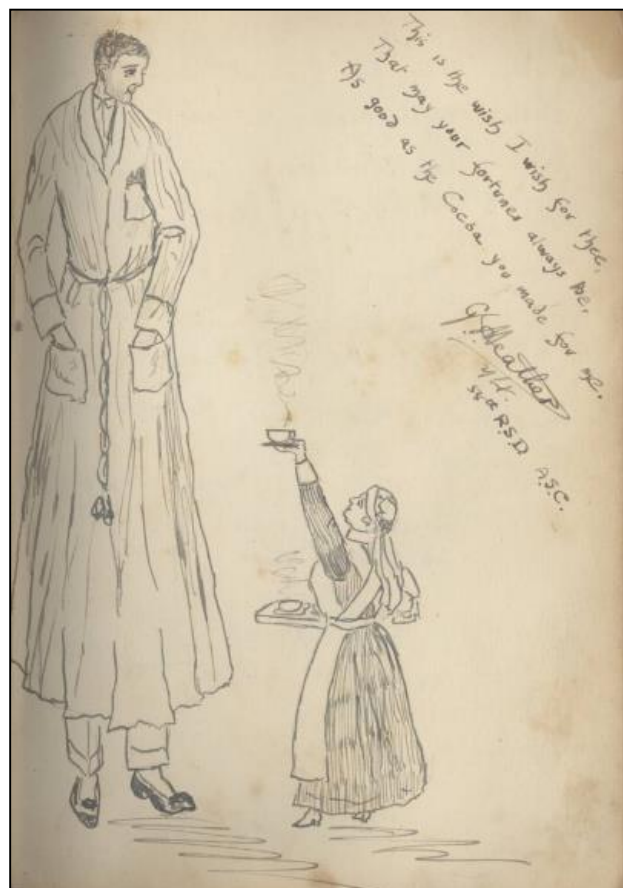 This is the wish I wish for thee,
That may your fortunes always be,
As good as the Cocoa you made for me.
Heather
A.S.C.